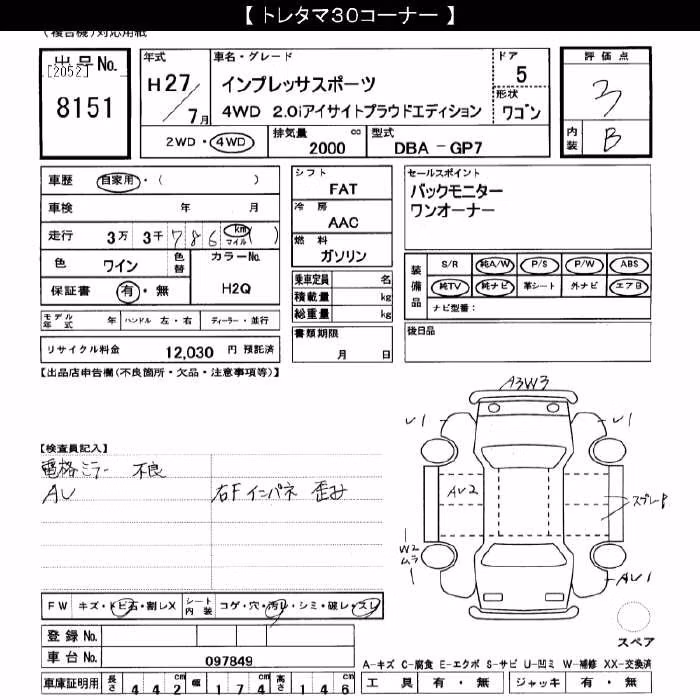 【 トレタマ30コーナー 】
(複合機)対応用紙
出品No.
[2052]
8151
年式
H27/7月
車名・グレード
インプレッサスポーツ
4WD 2.0iアイサイトプラウドエディション
ドア
5
形状
ワゴン
2WD・4WD
排気量 2000 cc
型式 DBA - GP7
評価点
3
内装
B
車歴 自家用・( )
車検 年 月
走行 3万 3千 7 8 6 km マイル ( )
色 ワイン 色替
カラーNo.
H2Q
保証書 有・無
シフト
FAT
冷房
AAC
燃料
ガソリン
乗車定員 名
積載量 kg
総重量 kg
セールスポイント
バックモニター
ワンオーナー
装備品
S/R 純A/W P/S P/W ABS
純TV 純ナビ 革シート 外ナビ エアB
ナビ型番:
モデル年式 年 ハンドル 左・右 ディーラー・並行
書類期限
月 日
後日品
リサイクル料金 12,030 円 預託済
【出品店申告欄(不良箇所・欠品・注意事項等)】
A3W3
U1
U1
【検査員記入】
電格ミラー 不良
AU
右Fインパネ 歪み
AU2
スプレーP
W2
ムラ
AU1
FW キズ・トビ石・割レX
シート内装 コゲ・穴・汚レ・シミ・破レ・スレ
スペア
登録No.
車台No. 097849
A-キズ C-腐食 E-エクボ S-サビ U-凹ミ W-補修 XX-交換済
車庫証明用 長さ 4 4 2 cm 幅 1 7 4 cm 高さ 1 4 6 cm
工具 有・無 ジャッキ 有・無